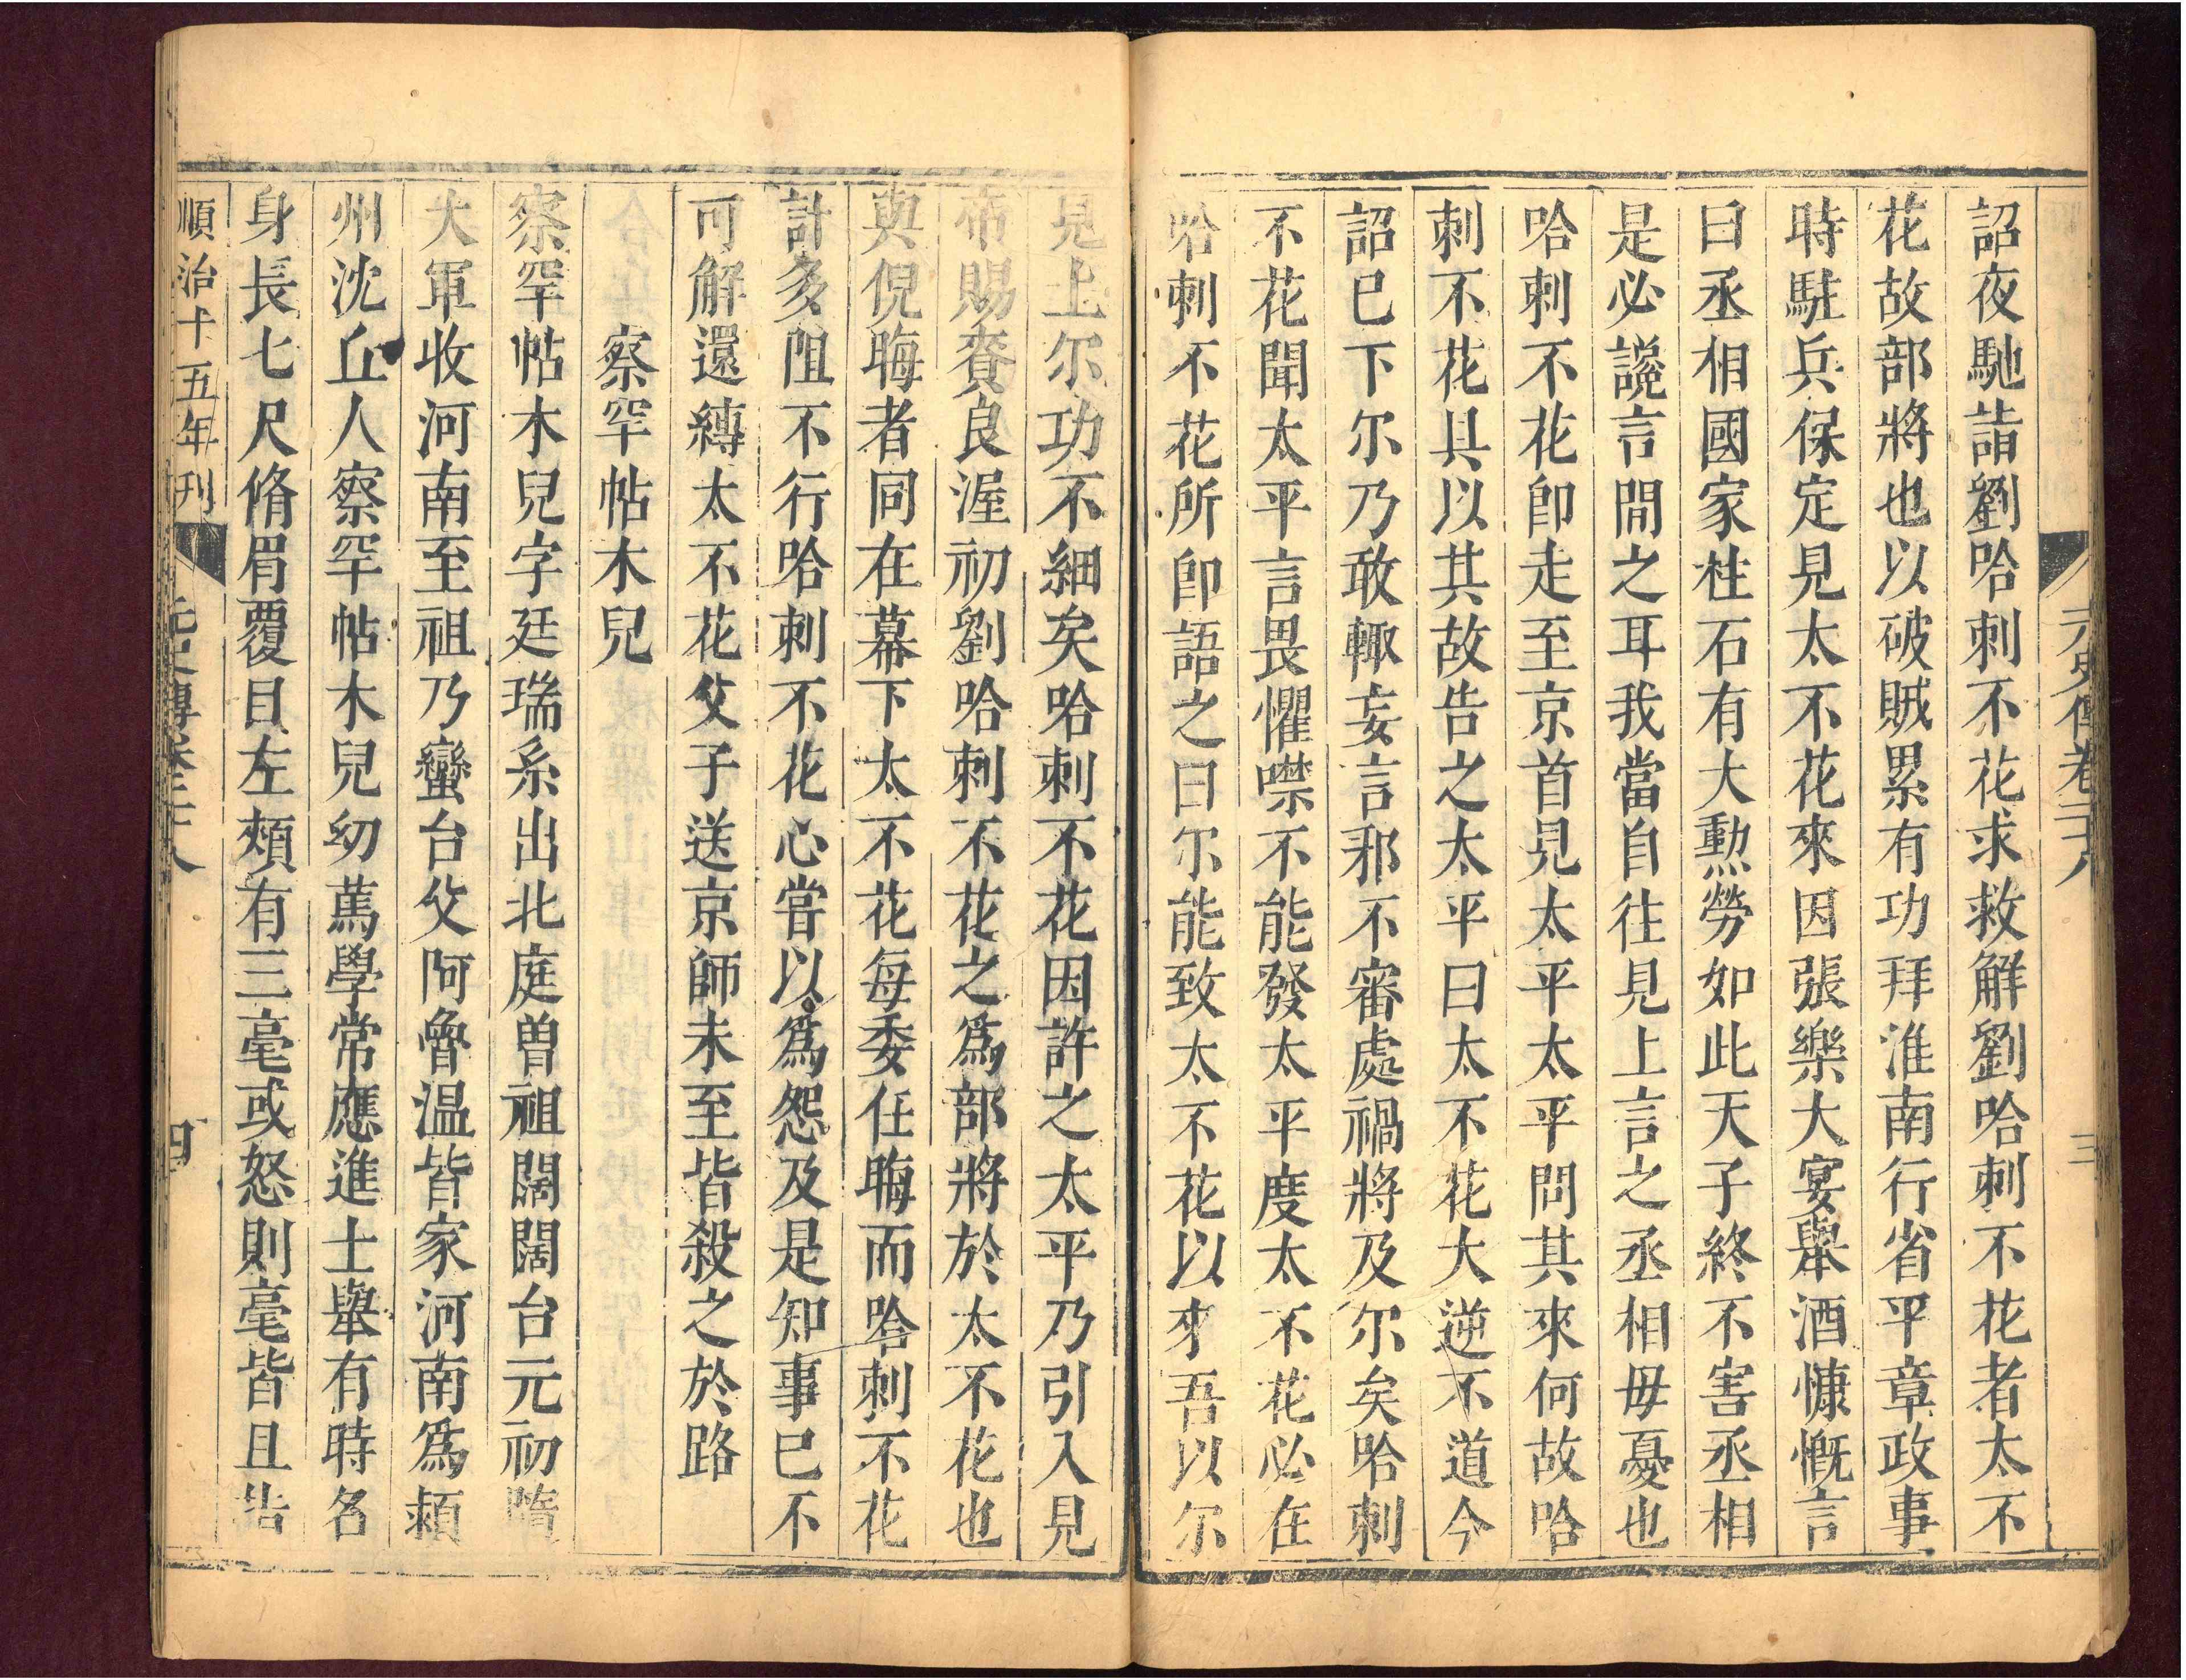 元史傳卷二十八
三
詔夜馳詣劉哈剌不花求救解劉哈剌不花者太不
花故部將也以破賊累有功拜淮南行省平章政事
時駐兵保定見太不花來因張樂大宴舉酒慷慨言
曰丞相國家柱石有大勲勞如此天子終不害丞相
是必讒言間之耳我當自往見上言之丞相毋憂也
哈剌不花即走至京首見太平太平問其來何故哈
剌不花具以其故告之太平曰太不花大逆不道今
詔已下尔乃敢輙妄言邪不審處禍將及尔矣哈剌
不花聞太平言畏懼噤不能發太平度太不花必在
哈剌不花所即語之曰尔能致太不花以來吾以尔
見上尔功不細矣哈剌不花因許之太平乃引入見
帝賜賚良渥初劉哈剌不花之爲部將於太不花也
與倪晦者同在幕下太不花每委任晦而哈剌不花
計多阻不行哈剌不花心嘗以爲怨及是知事已不
可解還縛太不花父子送京師未至皆殺之於路
察罕帖木兒
察罕帖木兒字廷瑞系出北庭曽祖闊闊台元初隨
大軍收河南至祖乃蠻台父阿魯温皆家河南爲頴
州沈丘人察罕帖木兒幼篤學常應進士舉有時名
身長七尺脩眉覆目左頰有三毫或怒則毫皆且告
順治十五年刊
元史傳卷二十八
四